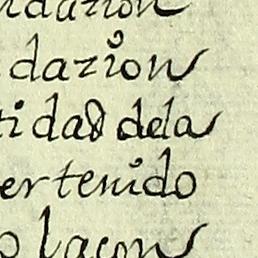 ndazion
dazion
tidad dela
ertenido
o laçon